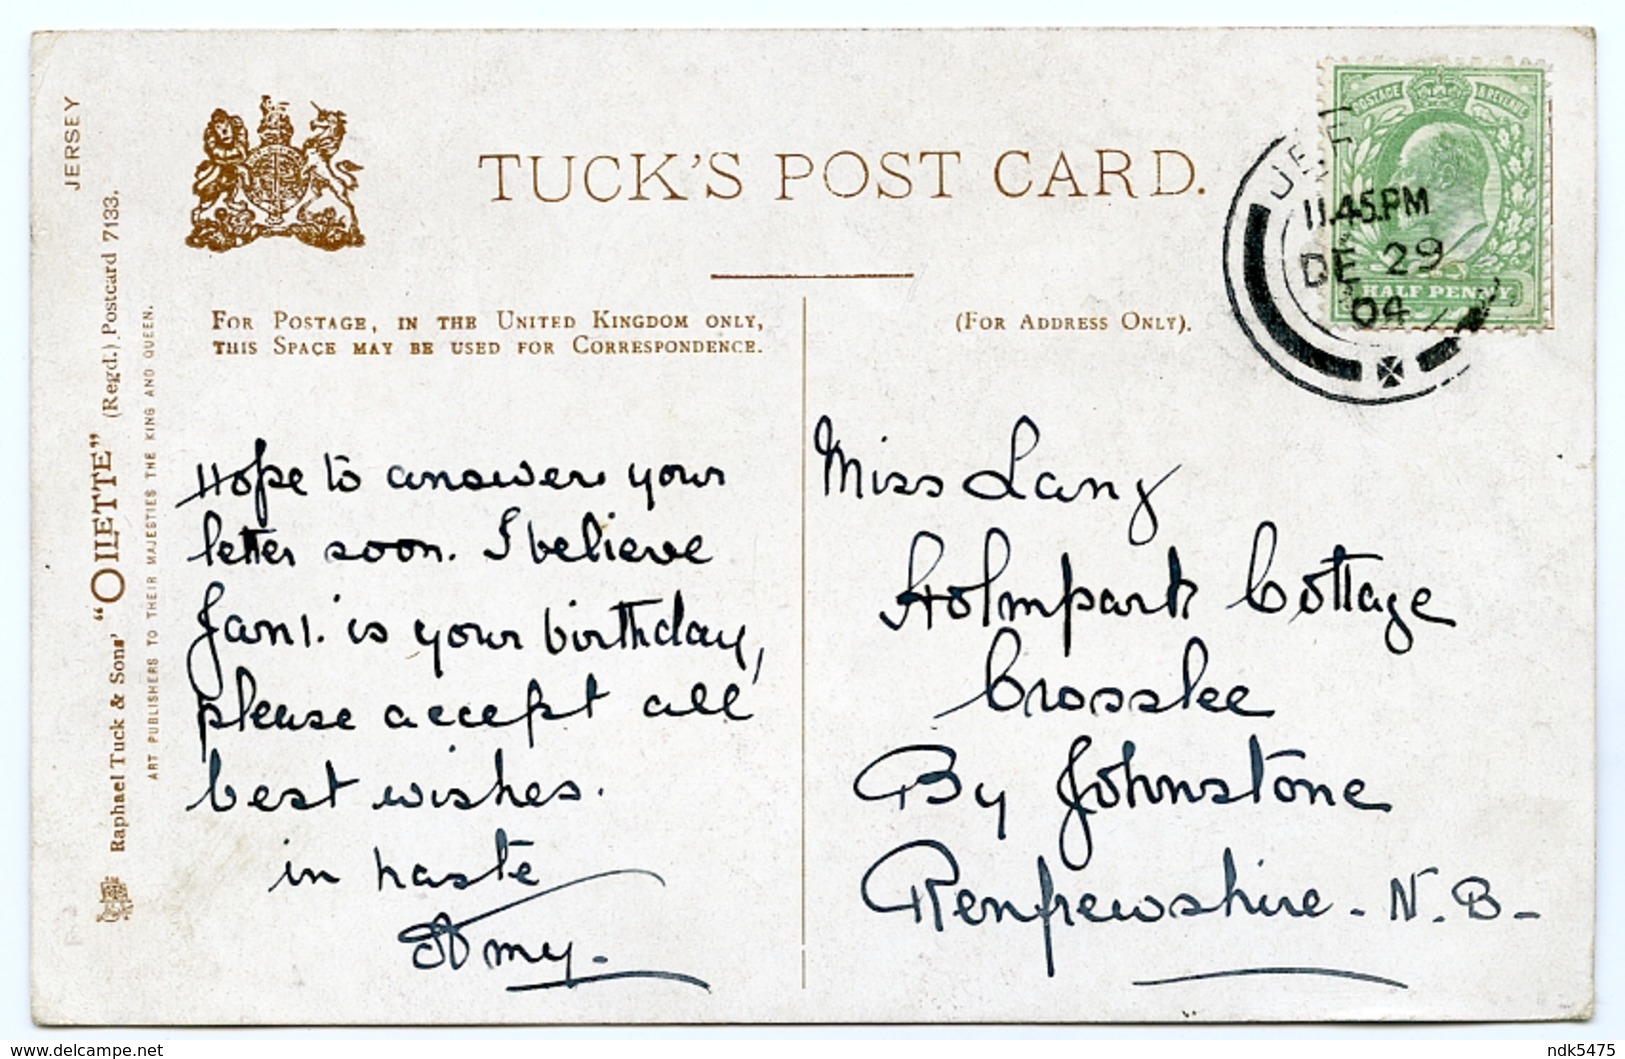 JERSEY
Raphael Tuck & Sons' "OILETTE" (Regd.) Postcard 7133.
ART PUBLISHERS TO THEIR MAJESTIES THE KING AND QUEEN.
TUCK'S POST CARD.
FOR POSTAGE, IN THE UNITED KINGDOM ONLY,
THIS SPACE MAY BE USED FOR CORRESPONDENCE.
(FOR ADDRESS ONLY).
POSTAGE & REVENUE
HALF PENNY
11.45.PM
DE 29
04
Hope to answer your
letter soon. I believe
Jan 1. is your birthday,
please accept all
best wishes.
in haste
Amy.
Miss Lang
Holmpark Cottage
Crosslee
By Johnstone
Renfrewshire - N.B-
delcampe.net
ndk5475